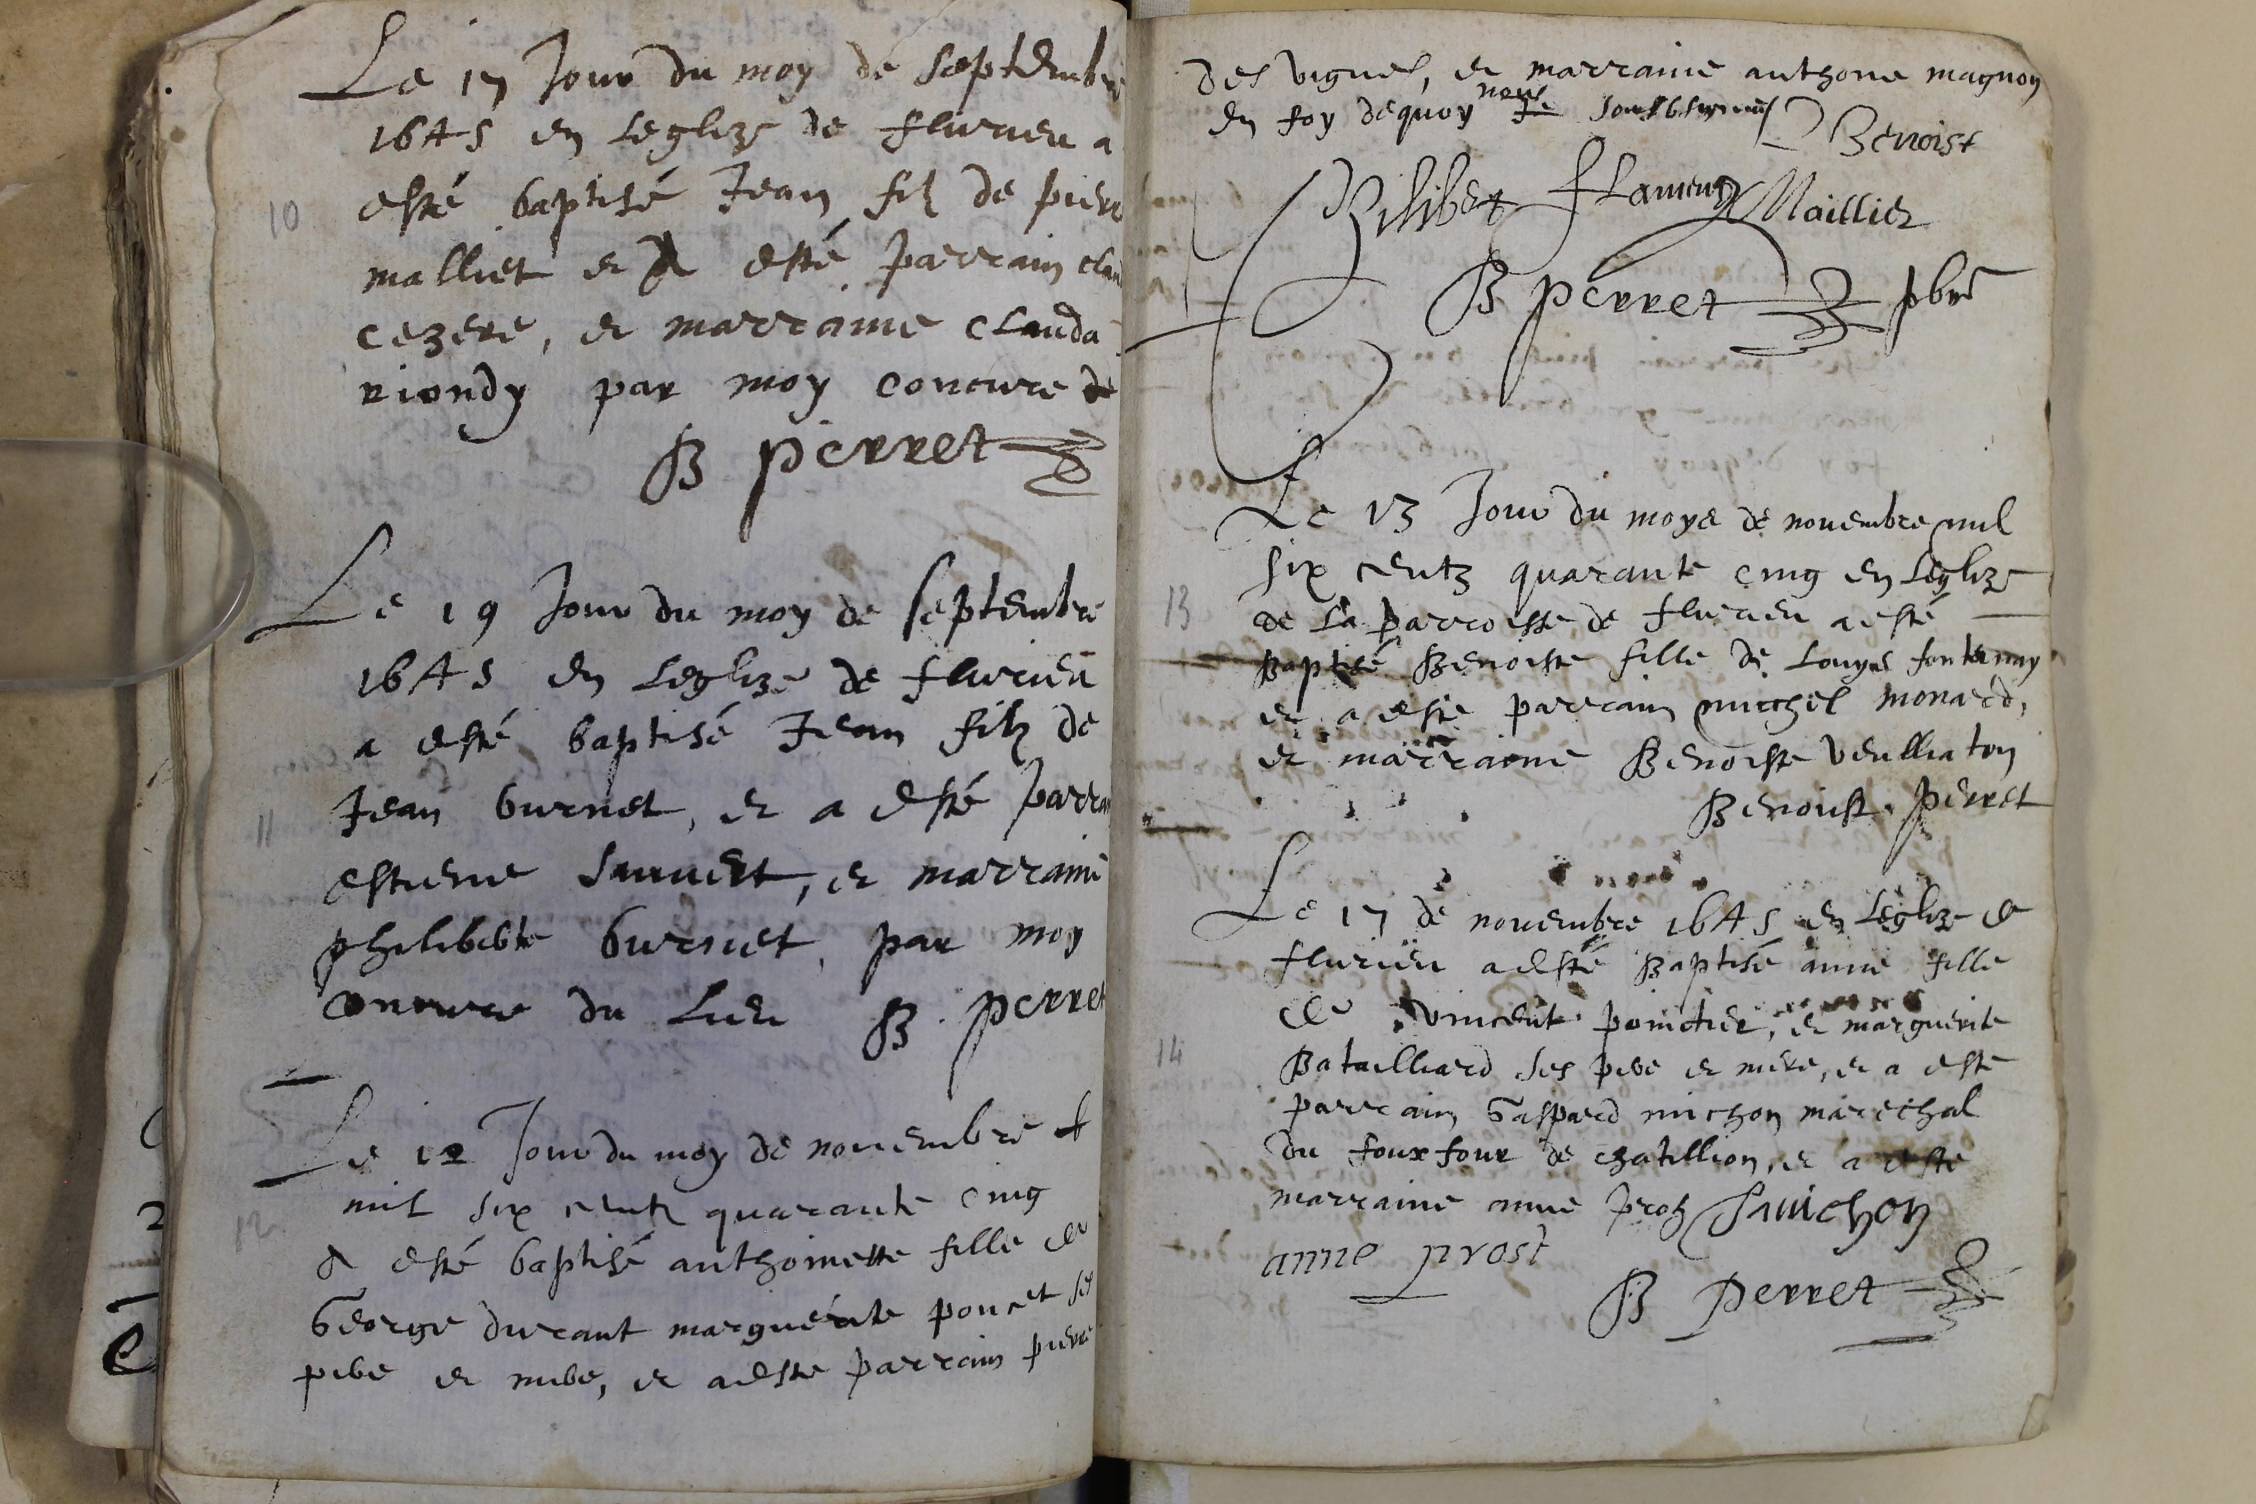 Le 17 Jour du moy de septembre
1645 en leglize de flurieu a
10
esté baptisé Jean filz de pierre
malliet et A esté parrain clau
cezere, et marraine clauda
riondy par moy concure de
B perret
Le 19 Jour du moy de septembre
1645 en leglize de flurieu
a esté baptisé Jean filz de
11
Jean burnet, et a esté parrai
estiene sauvert, et marraine
philibebte burnet, par moy
concure du lieu B. perret
Le 12 Jour du moy de novembre
mil six centz quarante cinq
12
A esté baptisé anthoinette fille de
George durant marguerite poncet ses
pere et mere, et a este parrain pierre
des vignes, et marraine anthone magnon
En foy dequoy nous Je soubsignes
Benoist
Philibert flameng Maillier
B perret pbre
Le 13 Jour du moys de novembre mil
six centz quarante cinq en leglize
13
de la parroisse de flurieu a esté
Baptisé Benoiste fille de Louys fontenay
et a este parrain michel monard,
et marraine Benoiste veulliaton
Benoist perret
Le 17 de novembre 1645 en leglize de
flurieu a esté Baptisé anne fille
de vincent pointier, et marguerite
14
Batailliard ses pere et mere, et a este
parrain Gaspard michon marechal
du fouxfour de chatillion, et a este
marraine anne proz G michon
anne prost
B Perret